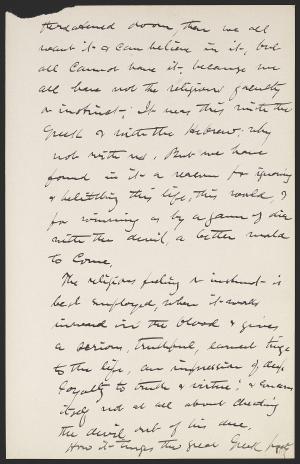 threatened doom, then we all
want it & can believe in it, but
all cannot have it, because we
all have not the religious faculty
or instinct; It was thus with the
Greek & with the Hebrew. why
not with us. But we have
found in it a reason for ignoring
& belittling this life, this world, &
for winning as by a game of dice
with the devil, a better world
to come,
The religious feeling & instinct is
best employed when it works
inward in the blood & gives
a serious, truthful, earnest tinge
to the life, an impression of deep
loyalty to truth & virtue; & concerns
itself not at all about cheating
the devil out of his due.
How it tinges the great Greek